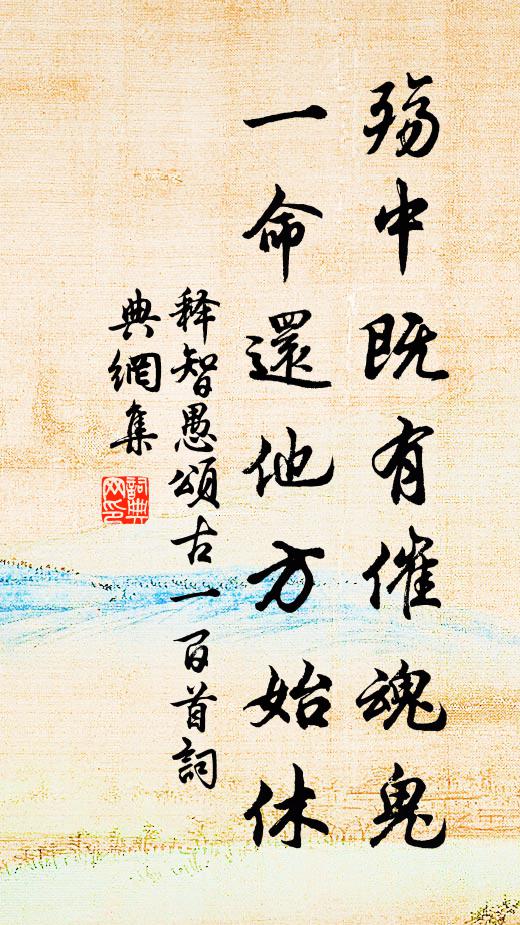 殤中既有催魂鬼
一命還他方始休
释智愚頌古一百首詞
典網集
詞典
网印